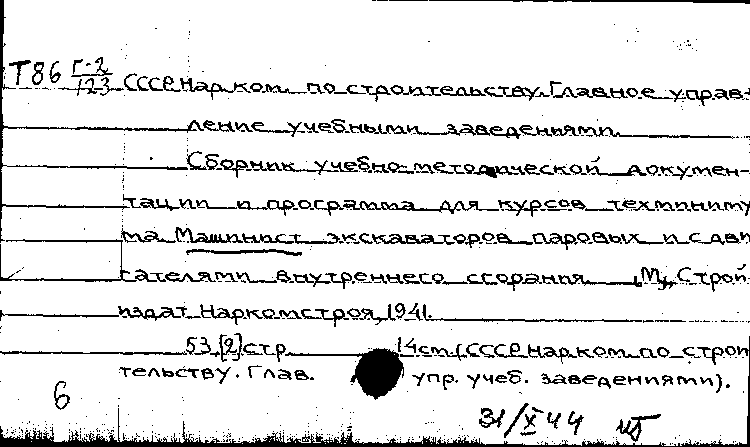 Т86 Г-2/123 СССР. Нар. ком. по строительству. Главное управ-
ление учебными заведениями.
Сборник учебно-методической докумен-
тации и программа для курсов техминиму
ма. Машинист экскаваторов паровых и с дви
гателями внутреннего сгорания. М., Строй
издат Наркомстроя, 1941.
53,[2] стр. 14 см. (СССР. Нар. ком. по строи
тельству. Глав. упр. учеб. заведениями).
6
31/X 44